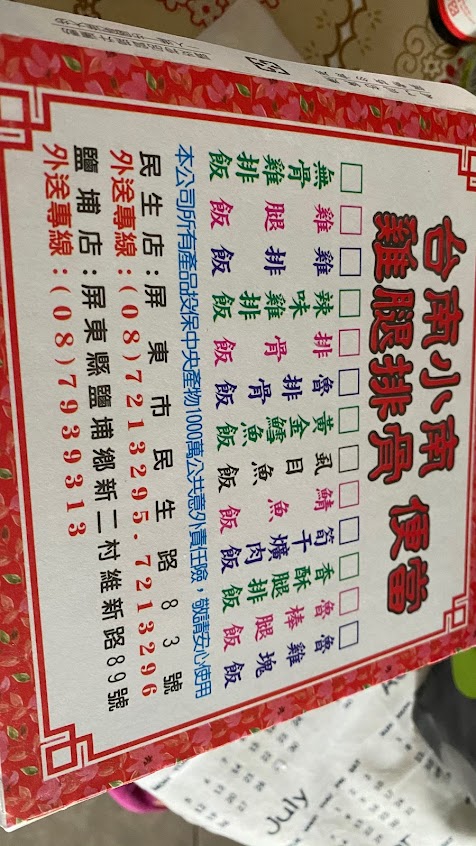 台南小南
雞腿排骨便當
□無骨雞排飯
□雞腿飯
□雞排飯
□辣味雞排飯
□排骨飯
□魯排骨飯
□黃金鱈魚飯
□虱目魚飯
□鯖魚飯
□筍干爌肉飯
□香酥腿排飯
□魯棒腿飯
□魯雞塊飯
本公司所有產品投保中央產物1000萬公共意外責任險，敬請安心使用
民生店:屏東市民生路83號
外送專線:(08)7213295.7213296
鹽埔店:屏東縣鹽埔鄉新二村維新路89號
外送專線:(08)7939313
July